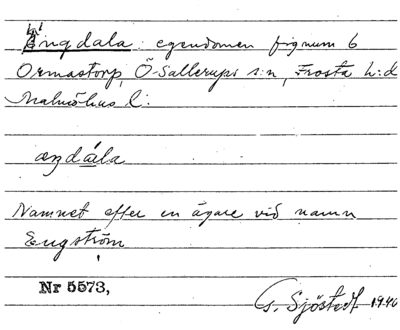 Engdala: egendomen fignum 6
Ormastorp, Ö Sallerups s:n, Frosta h:d
Malmöhus l:
æŋdála
Namnet efter en ägare vid namn
Engström
Nr 5573,
G. Sjöstedt 1946